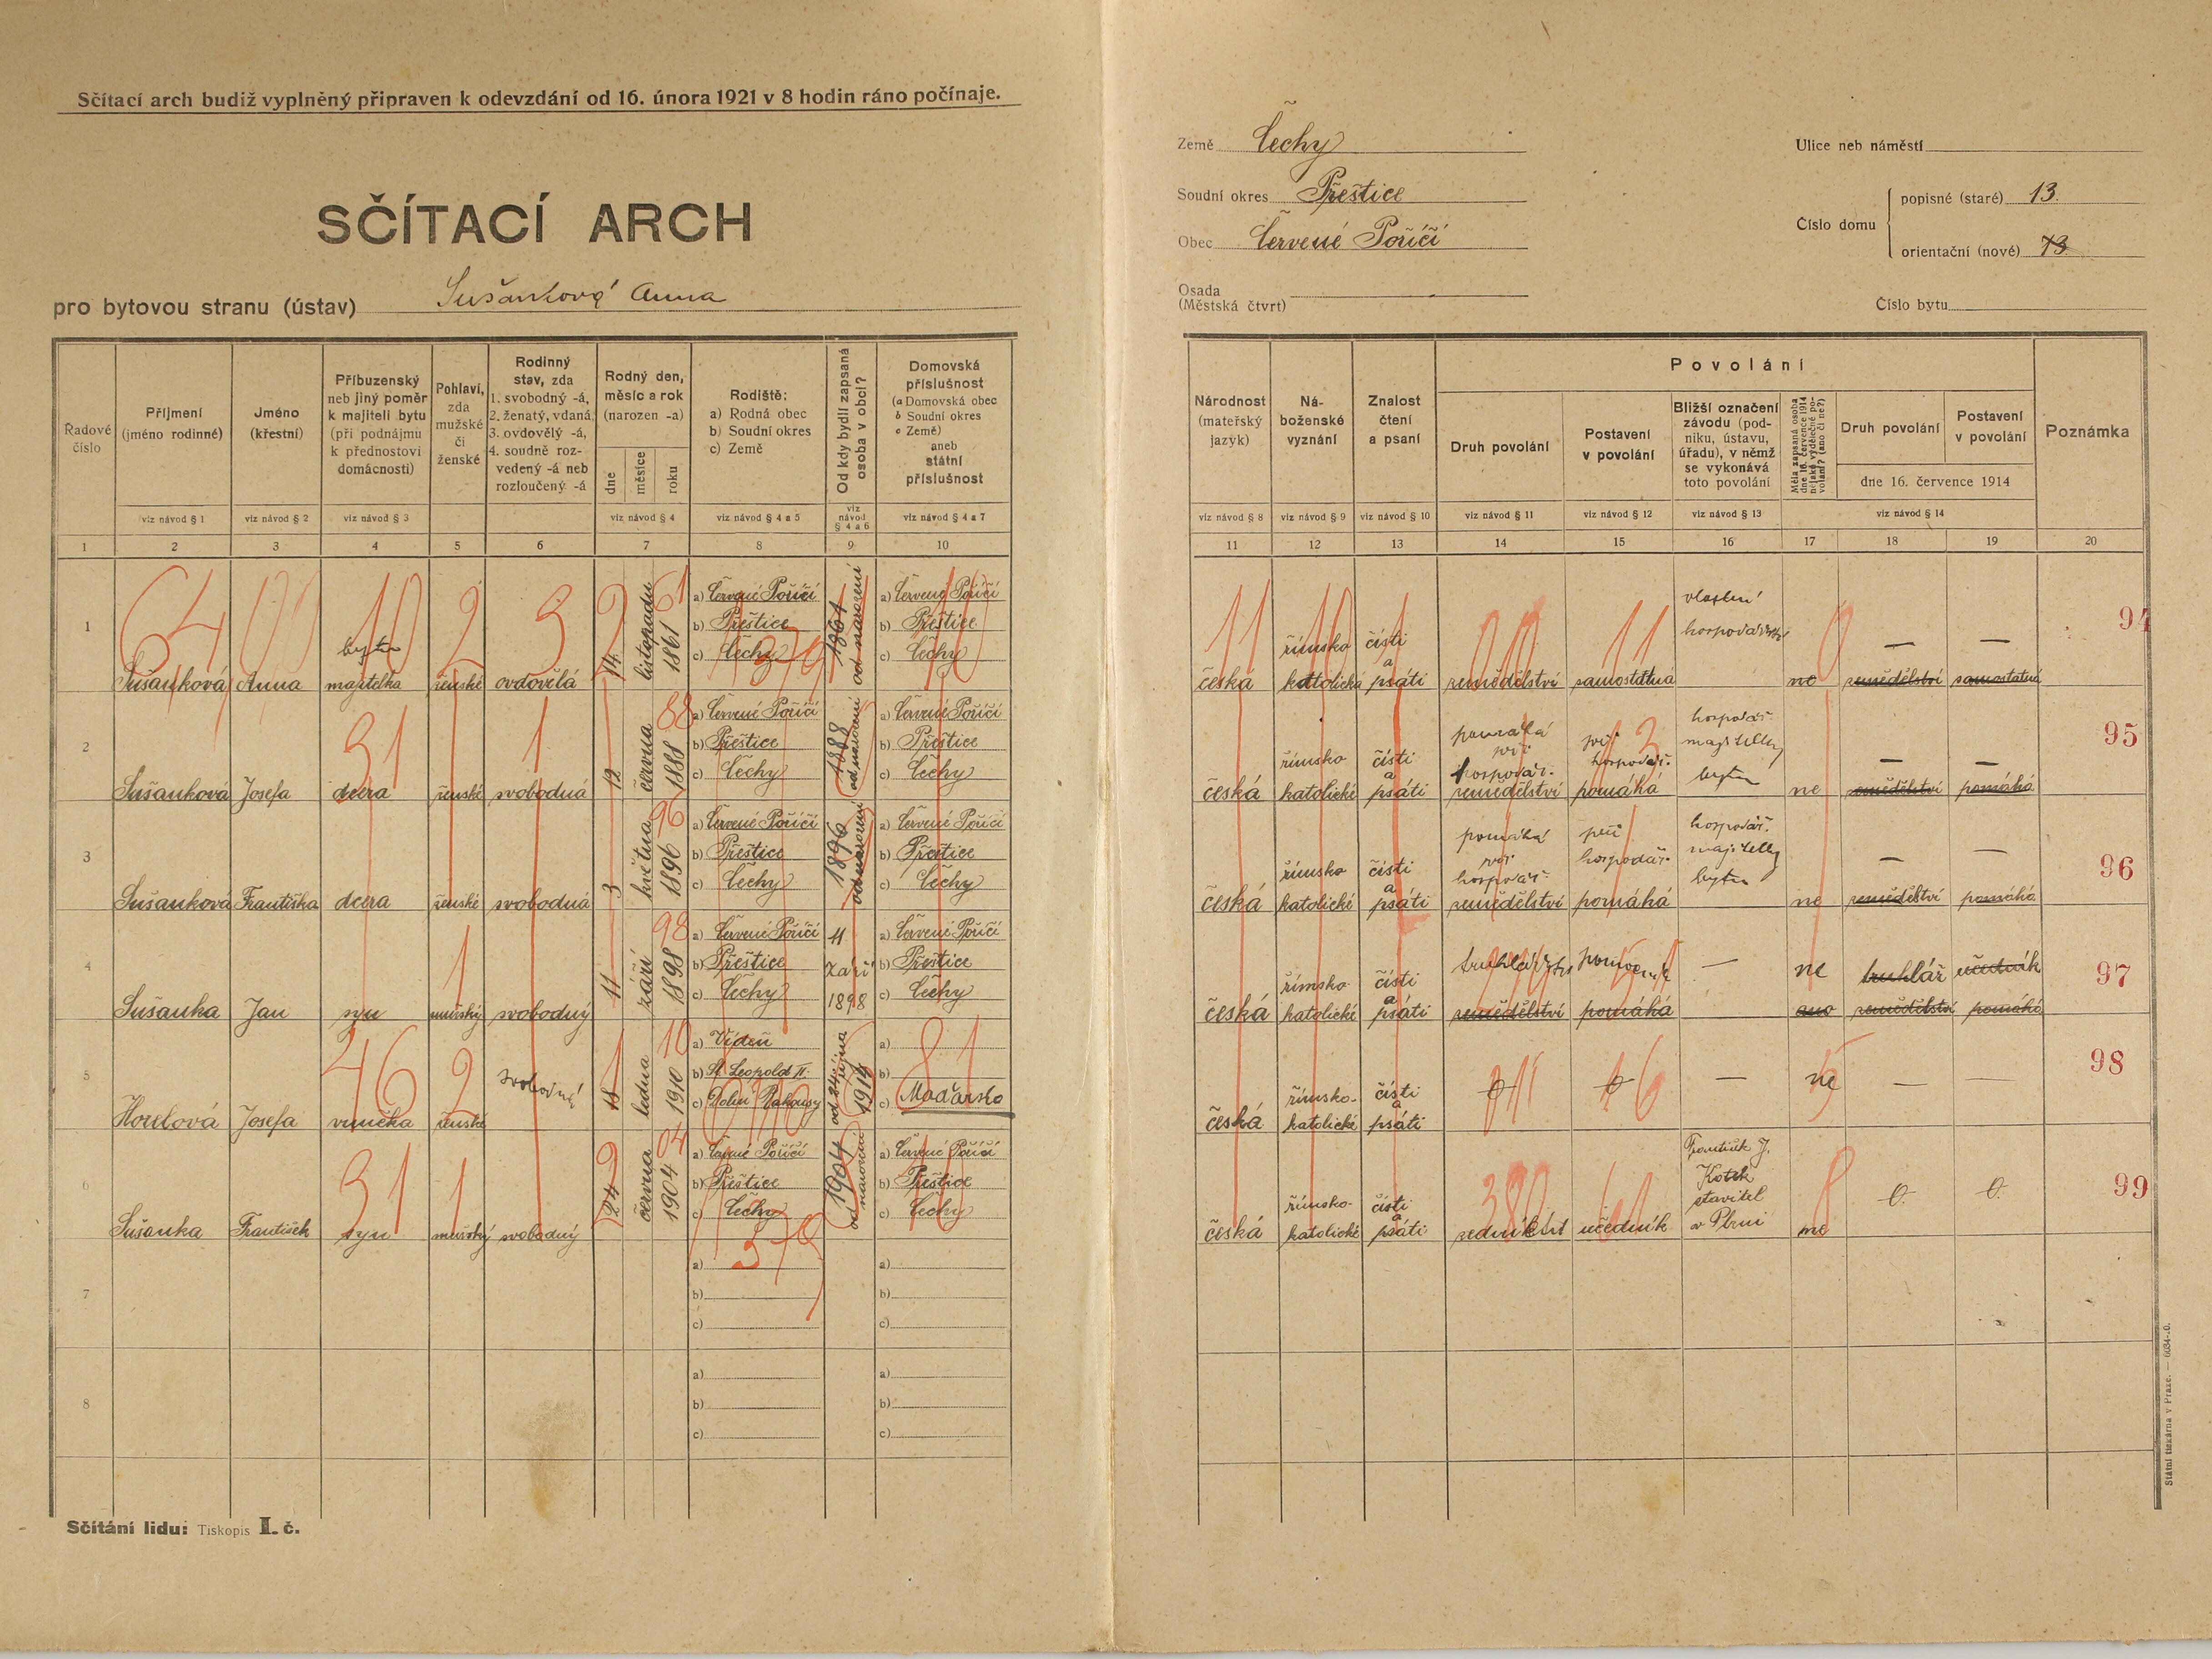 Sčítací arch budiž vyplněný připraven k odevzdání od 16. února 1921 v 8 hodin ráno počínaje.
SČÍTACÍ ARCH
pro bytovou stranu (ústav) Sušanková Anna
Země Čechy
Soudní okres Přeštice
Obec Červené Poříčí
Osada
(Městská čtvrt)
Ulice neb náměstí
Číslo domu
popisné (staré) 13.
orientační (nové) 13
Číslo bytu
Řadové číslo
Příjmení (jméno rodinné)
Jméno (křestní)
Příbuzenský neb jiný poměr k majiteli bytu (při podnájmu k přednostovi domácnosti)
Pohlaví, zda mužské či ženské
Rodinný stav, zda 1. svobodný -á, 2. ženatý, vdaná, 3. ovdovělý -á, 4. soudně rozvedený -á neb rozloučený -á
Rodný den, měsíc a rok (narozen -a)
dne měsíce roku
Rodiště: a) Rodná obec b) Soudní okres c) Země
Od kdy bydlí zapsaná osoba v obci?
Domovská příslušnost (a Domovská obec b Soudní okres c Země) aneb státní příslušnost
viz návod § 1 viz návod § 2 viz návod § 3 viz návod § 4 viz návod § 4 a 5 viz návod § 4 a 6 viz návod § 4 a 7
1 2 3 4 5 6 7 8 9 10
Národnost (mateřský jazyk)
Náboženské vyznání
Znalost čtení a psaní
Povolání
Druh povolání
Postavení v povolání
Bližší označení závodu (podniku, ústavu, úřadu), v němž se vykonává toto povolání
Měla zapsaná osoba dne 16. července 1914 nějaké výdělečné povolání? (ano či ne?)
Druh povolání
Postavení v povolání
dne 16. července 1914
Poznámka
viz návod § 8 viz návod § 9 viz návod § 10 viz návod § 11 viz návod § 12 viz návod § 13 viz návod § 14
11 12 13 14 15 16 17 18 19 20
1 Sušanková Anna majitelka bytu ženské ovdovělá 14. listopadu 1861 a) Červené Poříčí b) Přeštice c) Čechy 1861 od narození a) Červené Poříčí b) Přeštice c) Čechy
česká římsko katolická čísti a psáti zemědělství samostatná vlastní hospodářství ne — zemědělství — samostatná 94
2 Sušanková Josefa dcera ženské svobodná 12 června 1888 a) Červené Poříčí b) Přeštice c) Čechy 1888 od narození a) Červené Poříčí b) Přeštice c) Čechy
česká římsko katolické čísti a psáti pomáhá při hospodář. zemědělství při hospodář. pomáhá hospodář. majitelky bytu ne — zemědělství — pomáhá 95
3 Sušanková Františka dcera ženské svobodná 3 května 1896 a) Červené Poříčí b) Přeštice c) Čechy 1896 od narození a) Červené Poříčí b) Přeštice c) Čechy
česká římsko katolické čísti a psáti pomáhá při hospodář. zemědělství při hospodář. pomáhá hospodář. majitelky bytu ne — zemědělství — pomáhá 96
4 Sušanka Jan syn mužský svobodný 11 září 1898 a) Červené Poříčí b) Přeštice c) Čechy 11 září 1898 a) Červené Poříčí b) Přeštice c) Čechy
česká římsko- katolické čísti a psáti zemědělství pomocník pomáhá — ne ano truhlář zemědělství učedník pomáhá 97
5 Josefa vnučka ženské svobodná 18 ledna 1910 a) Vídeň b) St. Leopold II. c) Dolní Rakousy od 24 října 1914 a) b) c) Maďarsko
česká římsko- katolické čísti a psáti 0 0 — ne — — 98
6 Sušanka František syn mužský svobodný 24 června 1904 a) Červené Poříčí b) Přeštice c) Čechy 1904 od narození a) Červené Poříčí b) Přeštice c) Čechy
česká římsko- katolické čísti a psáti zednictví učedník František J. Kotek stavitel v Plzni ne 0. 0. 99
7 a) b) c) a) b) c)
8 a) b) c) a) b) c)
Sčítání lidu: Tiskopis I. č.
Státní tiskárna v Praze.